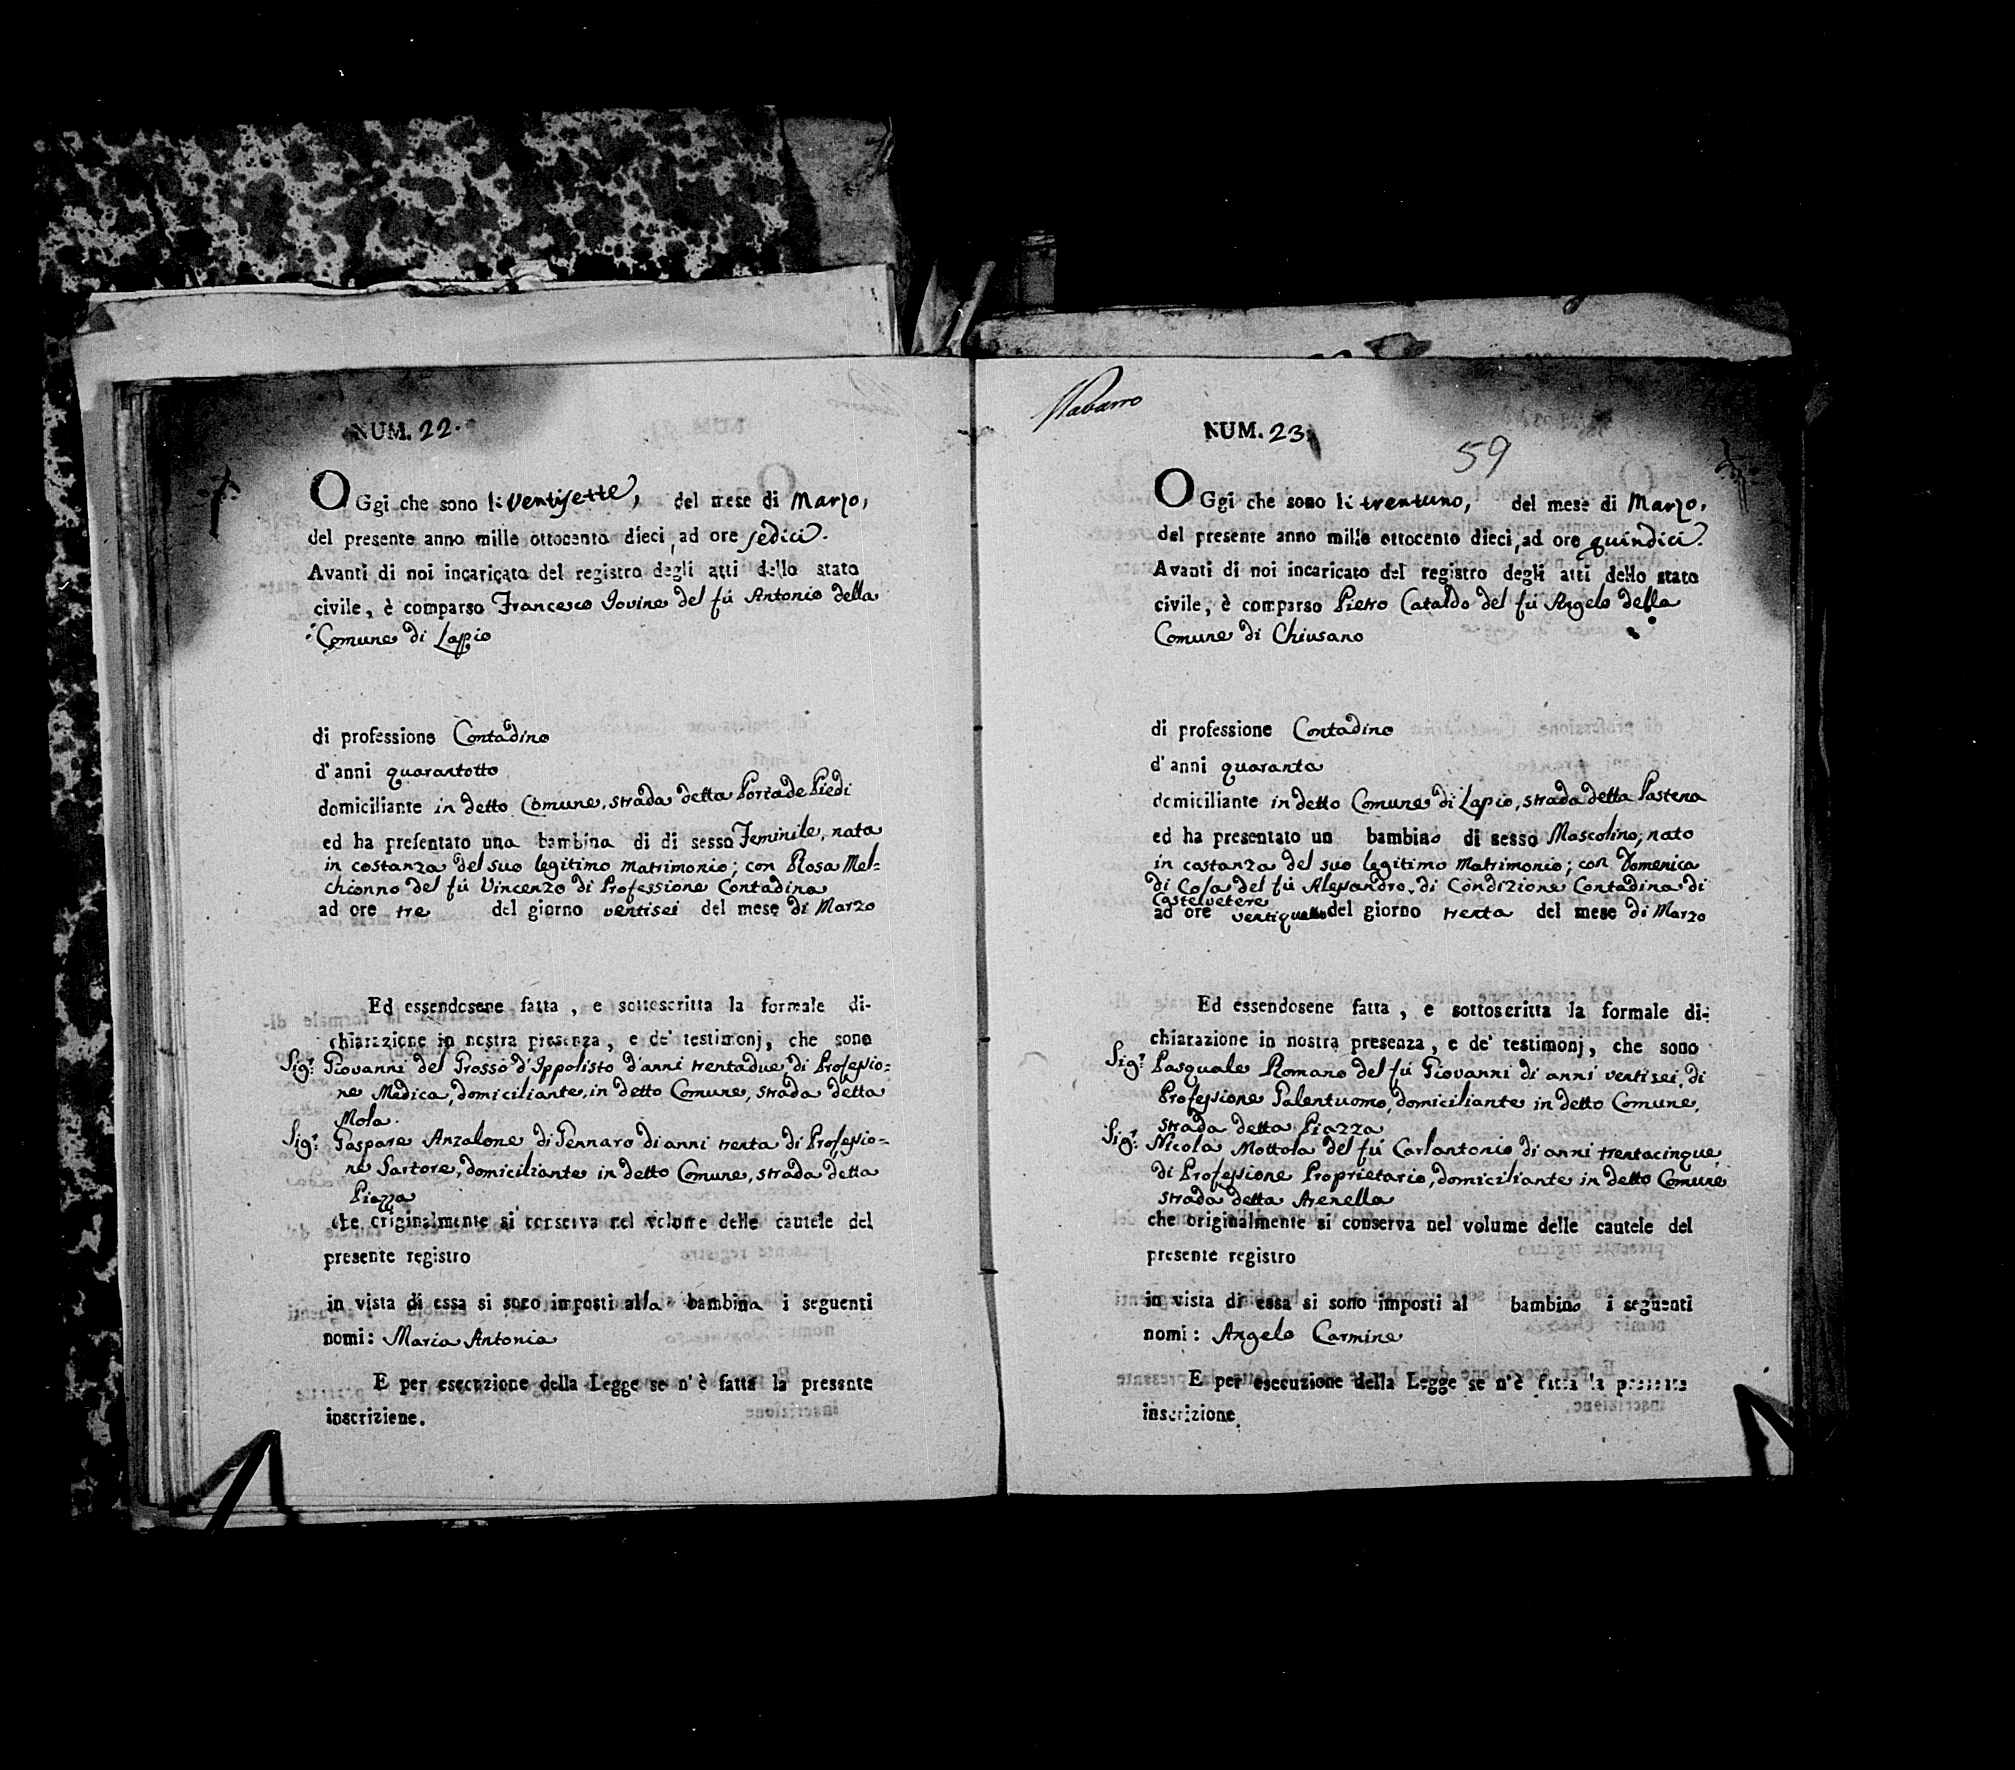 NUM. 22.
OGgi che sono li ventisette, del mese di Marzo,
del presente anno mille ottocento dieci, ad ore sedici.
Avanti di noi incaricato del registro degli atti dello stato
civile, è comparso Francesco Iovine del fú Antonio della
Comune di Lapio
di professione Contadino
d'anni quarantotto
domiciliante in detto Comune, strada detta Porta de Piedi
ed ha presentato una bambina di di sesso Feminile, nata
in costanza del suo legitimo matrimonio; con Rosa Mel=
chionno del fú Vincenzo di Professione Contadina
ad ore tre del giorno ventisei del mese di Marzo
Ed essendosene fatta, e sottoscritta la formale di-
chiarazione in nostra presenza, e de' testimonj, che sono
Sigr. Giovanni del Grosso d'Ippolisto d'anni trentadue, di Professio=
ne Medica, domiciliante, in detto Comune, strada detta
Mola.
Sigr. Gaspare Anzalone di Gennaro di anni trenta di Professio=
ne Sartore, domiciliante in detto Comune, strada detta
Piazza
che originalmente si conserva nel volume delle cautele del
presente registro
in vista di essa si sono imposti alla bambina i seguenti
nomi: Maria Antonia
E per esecuzione della Legge se n'è fatta la presente
inscrizione.
Navarro
NUM. 23
59
OGgi che sono li trentuno, del mese di Marzo,
del presente anno mille ottocento dieci, ad ore quindici.
Avanti di noi incaricato del registro degli atti dello stato
civile, è comparso Pietro Cataldo del fú Angelo della
Comune di Chiusano
di professione Contadino
d'anni quaranta
domiciliante in detto Comune di Lapio, strada detta Pastena
ed ha presentato un bambino di sesso Mascolino, nato
in costanza del suo legitimo matrimonio; con Domenica
di Cosa del fú Alessandro, di Condizione Contadina di
Castelvetere
ad ore ventiquattro del giorno trenta del mese di Marzo
Ed essendosene fatta, e sottoscritta la formale di-
chiarazione in nostra presenza, e de' testimonj, che sono
Sigr. Pasquale Romano del fú Giovanni di anni ventisei, di
Professione Galentuomo, domiciliante in detto Comune,
strada detta Piazza
Sigr. Nicola Mottola del fú Carlantonio di anni trentacinque
di Professione Proprietario, domiciliante in detto Comune
strada detta Arenella
che originalmente si conserva nel volume delle cautele del
presente registro
in vista di essa si sono imposti al bambino i seguenti
nomi: Angelo Carmine
E per esecuzione della Legge se n'è fatta la presente
inscrizione.